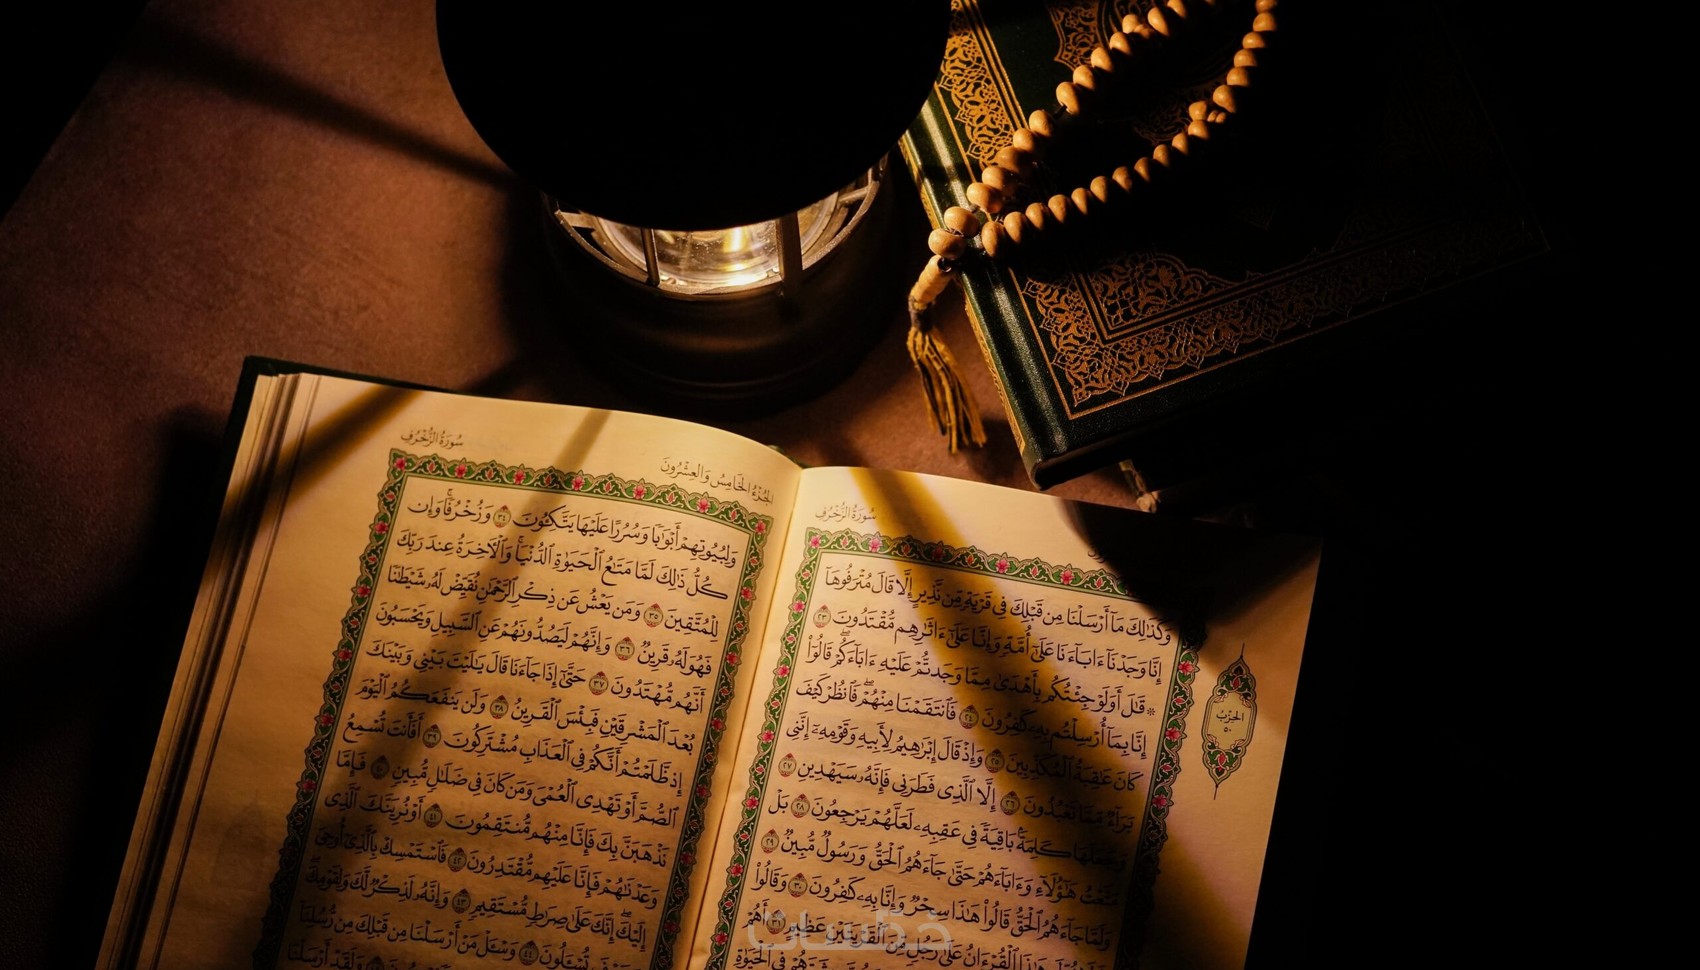 سُورَةُ الزُّخْرُفِ
وَكَذَٰلِكَ مَآ أَرْسَلْنَا مِن قَبْلِكَ فِي قَرْيَةٍ مِّن نَّذِيرٍ إِلَّا قَالَ مُتْرَفُوهَآ
إِنَّا وَجَدْنَآ ءَابَآءَنَا عَلَىٰٓ أُمَّةٍ وَإِنَّا عَلَىٰٓ ءَاثَٰرِهِم مُّقْتَدُونَ ٢٣
۞ قَٰلَ أَوَلَوْ جِئْتُكُم بِأَهْدَىٰ مِمَّا وَجَدتُّمْ عَلَيْهِ ءَابَآءَكُمْ ۖ قَالُوٓا۟
إِنَّا بِمَآ أُرْسِلْتُم بِهِۦ كَٰفِرُونَ ٢٤ فَٱنتَقَمْنَا مِنْهُمْ ۖ فَٱنظُرْ كَيْفَ
كَانَ عَٰقِبَةُ ٱلْمُكَذِّبِينَ ٢٥ وَإِذْ قَالَ إِبْرَٰهِيمُ لِأَبِيهِ وَقَوْمِهِۦٓ إِنَّنِى
بَرَآءٌ مِّمَّا تَعْبُدُونَ ٢٦ إِلَّا ٱلَّذِى فَطَرَنِى فَإِنَّهُۥ سَيَهْدِينِ ٢٧
وَجَعَلَهَا كَلِمَةًۢ بَاقِيَةً فِى عَقِبِهِۦ لَعَلَّهُمْ يَرْجِعُونَ ٢٨ بَلْ
مَتَّعْتُ هَٰٓؤُلَآءِ وَءَابَآءَهُمْ حَتَّىٰ جَآءَهُمُ ٱلْحَقُّ وَرَسُولٌ مُّبِينٌ ٢٩
وَلَمَّا جَآءَهُمُ ٱلْحَقُّ قَالُوا۟ هَٰذَا سِحْرٌ وَإِنَّا بِهِۦ كَٰفِرُونَ ٣٠ وَقَالُوا۟
هَٰذَا ٱلْقُرْءَانُ عَلَىٰ رَجُلٍ مِّنَ ٱلْقَرْيَتَيْنِ عَظِيمٍ ٣١ أَهُمْ
فِى ٱلْحَيَوٰةِ
الحِزْبُ
٥٠
سُورَةُ الزُّخْرُفِ
الجُزْءُ الخَامِسُ وَالعِشْرُونَ
وَلِبُيُوتِهِمْ أَبْوَٰبًا وَسُرُرًا عَلَيْهَا يَتَّكِـُٔونَ ٣٤ وَزُخْرُفًا ۚ وَإِن
كُلُّ ذَٰلِكَ لَمَّا مَتَٰعُ ٱلْحَيَوٰةِ ٱلدُّنْيَا ۚ وَٱلْءَاخِرَةُ عِندَ رَبِّكَ
لِلْمُتَّقِينَ ٣٥ وَمَن يَعْشُ عَن ذِكْرِ ٱلرَّحْمَٰنِ نُقَيِّضْ لَهُۥ شَيْطَٰنًا
فَهُوَ لَهُۥ قَرِينٌ ٣٦ وَإِنَّهُمْ لَيَصُدُّونَهُمْ عَنِ ٱلسَّبِيلِ وَيَحْسَبُونَ
أَنَّهُم مُّهْتَدُونَ ٣٧ حَتَّىٰٓ إِذَا جَآءَنَا قَالَ يَٰلَيْتَ بَيْنِى وَبَيْنَكَ
بُعْدَ ٱلْمَشْرِقَيْنِ فَبِئْسَ ٱلْقَرِينُ ٣٨ وَلَن يَنفَعَكُمُ ٱلْيَوْمَ
إِذ ظَّلَمْتُمْ أَنَّكُمْ فِى ٱلْعَذَابِ مُشْتَرِكُونَ ٣٩ أَفَأَنتَ تُسْمِعُ
ٱلصُّمَّ أَوْ تَهْدِى ٱلْعُمْىَ وَمَن كَانَ فِى ضَلَٰلٍ مُّبِينٍ ٤٠ فَإِمَّا
نَذْهَبَنَّ بِكَ فَإِنَّا مِنْهُم مُّنتَقِمُونَ ٤١ أَوْ نُرِيَنَّكَ ٱلَّذِى
وَعَدْنَٰهُمْ فَإِنَّا عَلَيْهِم مُّقْتَدِرُونَ ٤٢ فَٱسْتَمْسِكْ بِٱلَّذِىٓ أُوحِىَ
إِلَيْكَ ۖ إِنَّكَ عَلَىٰ صِرَٰطٍ مُّسْتَقِيمٍ ٤٣ وَإِنَّهُۥ لَذِكْرٌ لَّكَ وَلِقَوْمِكَ ۖ
وَسَوْفَ تُسْـَٔلُونَ ٤٤ وَسْـَٔلْ مَنْ أَرْسَلْنَا مِن قَبْلِكَ مِن رُّسُلِنَآ
وَلَقَدْ أَرْسَلْنَا
خمسات